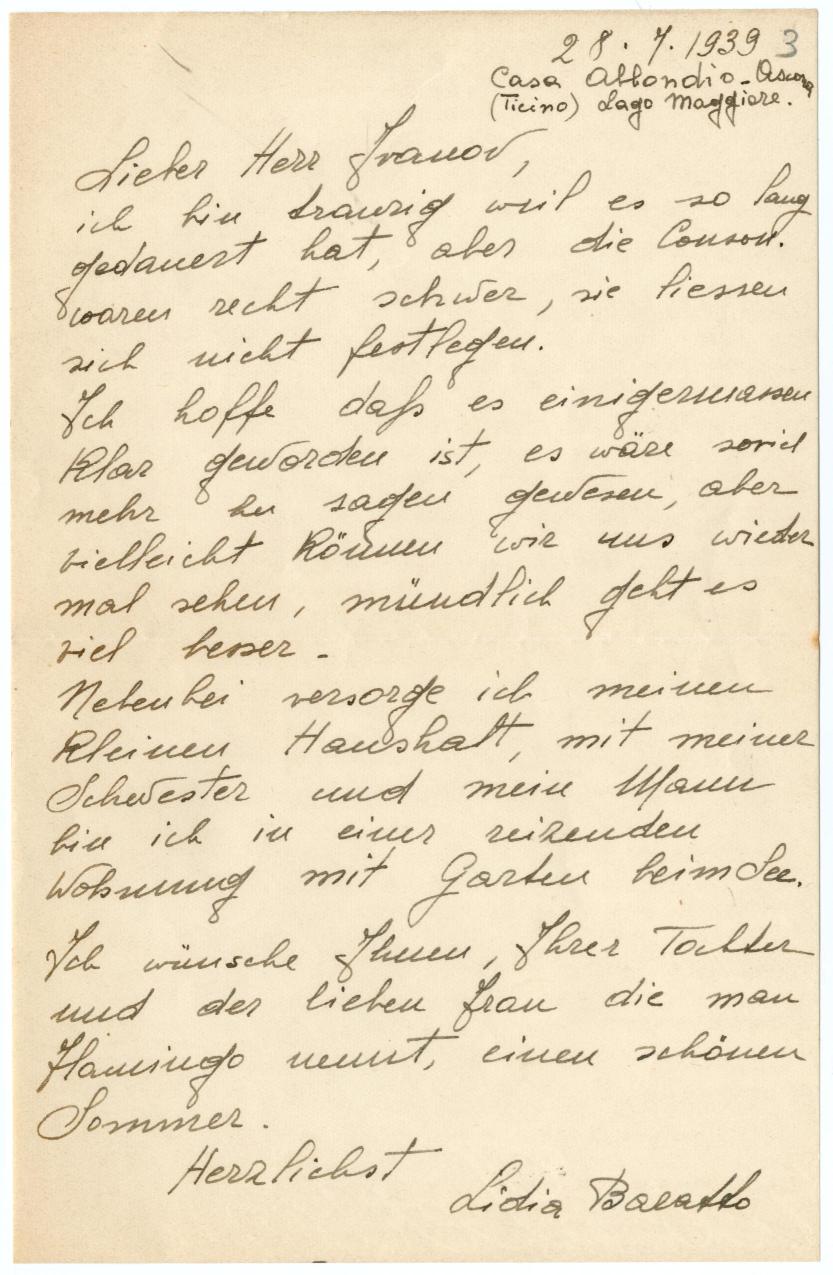 28. 7. 1939 3
Casa Abbondio - Ascona
(Ticino) Lago Maggiore.
Lieber Herr Ivanov,
ich bin traurig weil es so lang
gedauert hat, aber die Conson.
waren recht schwer, sie liessen
sich nicht festlegen.
Ich hoffe daß es einigermassen
klar geworden ist, es wäre soviel
mehr zu sagen gewesen, aber
vielleicht können wir uns wieder
mal sehen, mündlich geht es
viel besser -
Nebenbei versorge ich meinen
kleinen Haushalt, mit meiner
Schwester und mein Mann
bin ich in einer reizenden
Wohnung mit Garten beim See.
Ich wünsche Ihnen, Ihrer Tochter
und der lieben Frau die man
Flamingo nennt, einen schönen
Sommer.
Herzlichst
Lidia Baratto